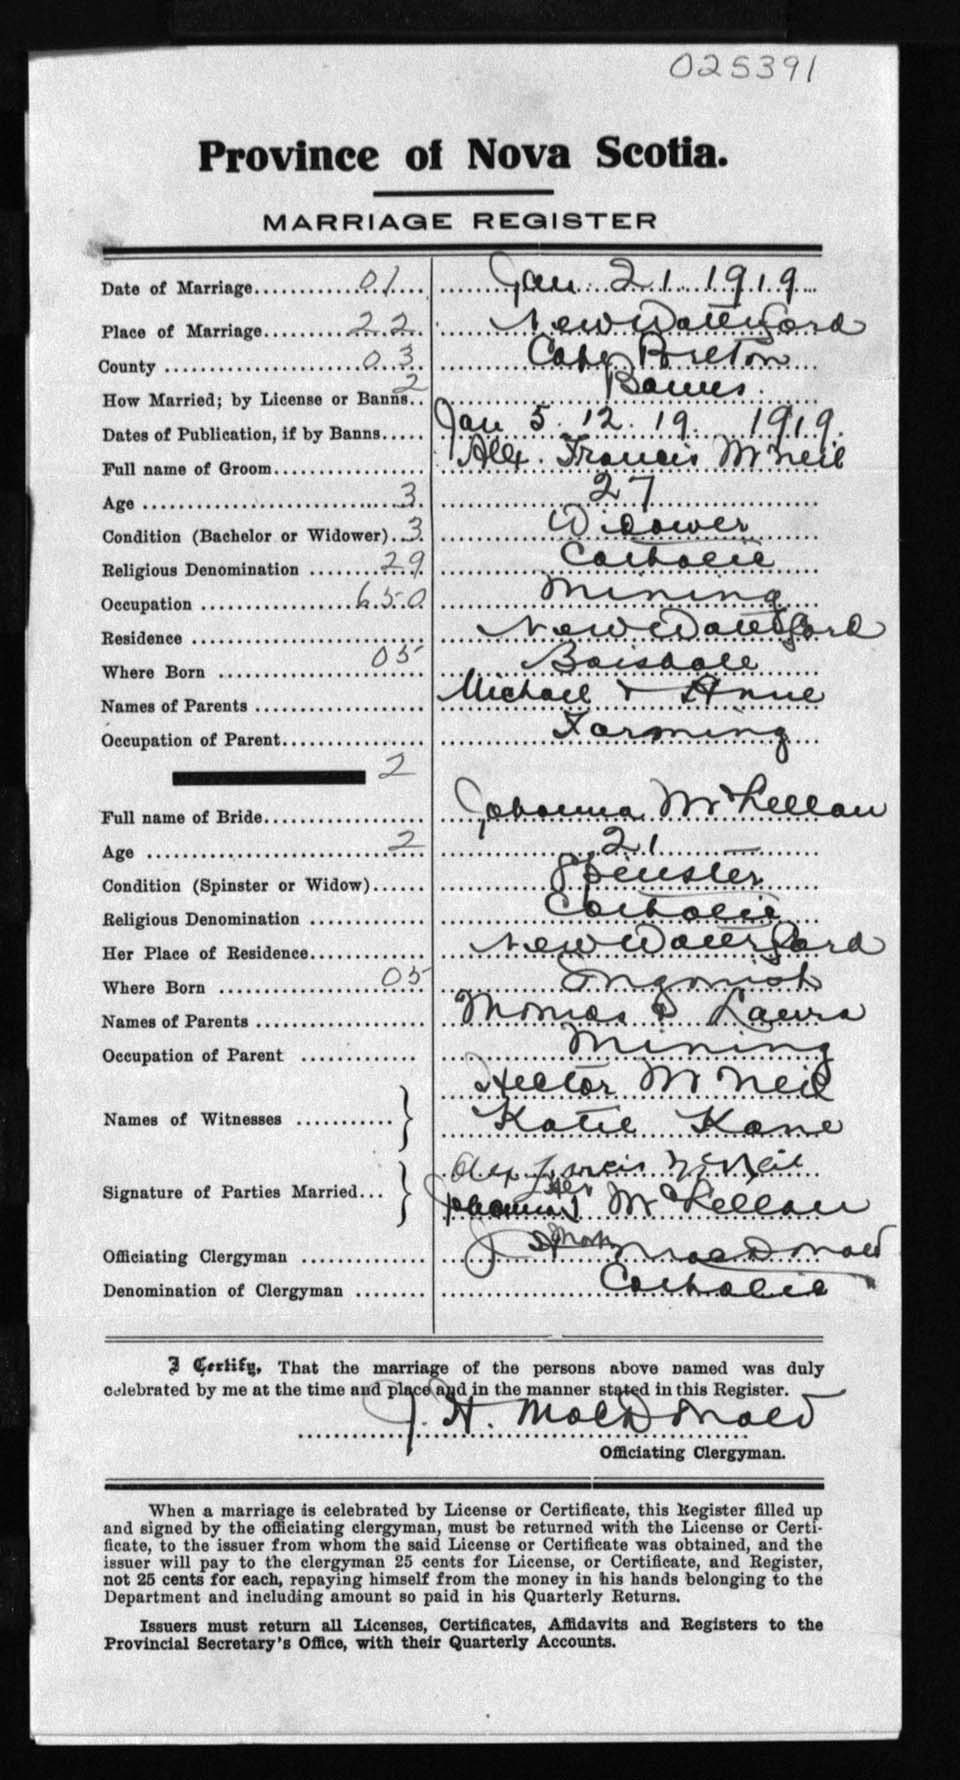 025391
Province of Nova Scotia.
MARRIAGE REGISTER
Date of Marriage 01 Jan 21 1919
Place of Marriage 22 New Waterford
County 03 Cape Breton
How Married; by License or Banns 2 Banns
Dates of Publication, if by Banns Jan 5. 12. 19. 1919.
Full name of Groom Alex. Francis McNeil
Age 3 27
Condition (Bachelor or Widower) 3 Widower
Religious Denomination 29 Catholic
Occupation 650 Mining
Residence New Waterford
Where Born 05 Boisdale
Names of Parents Michael & Anne
Occupation of Parent Farming
2
Full name of Bride Johanna McLellan
Age 2 21
Condition (Spinster or Widow) Spinster
Religious Denomination Catholic
Her Place of Residence New Waterford
Where Born 05 Ingonish
Names of Parents Thomas & Laura
Occupation of Parent Mining
Names of Witnesses Hector McNeil
Katie Kane
Signature of Parties Married Alex Francis McNeil
her
Johanna McLellan
mark
Officiating Clergyman J H MacDonald
Denomination of Clergyman Catholic
I Certify, That the marriage of the persons above named was duly
celebrated by me at the time and place and in the manner stated in this Register.
J. H. MacDonald
Officiating Clergyman.
When a marriage is celebrated by License or Certificate, this Register filled up
and signed by the officiating clergyman, must be returned with the License or Certi-
ficate, to the issuer from whom the said License or Certificate was obtained, and the
issuer will pay to the clergyman 25 cents for License, or Certificate, and Register,
not 25 cents for each, repaying himself from the money in his hands belonging to the
Department and including amount so paid in his Quarterly Returns.
Issuers must return all Licenses, Certificates, Affidavits and Registers to the
Provincial Secretary's Office, with their Quarterly Accounts.